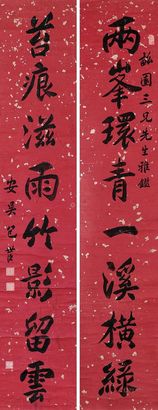 兩峯環青一溪橫綠
詒園三兄先生雅鑑
苔痕滋雨竹影留雲
安吳包世臣